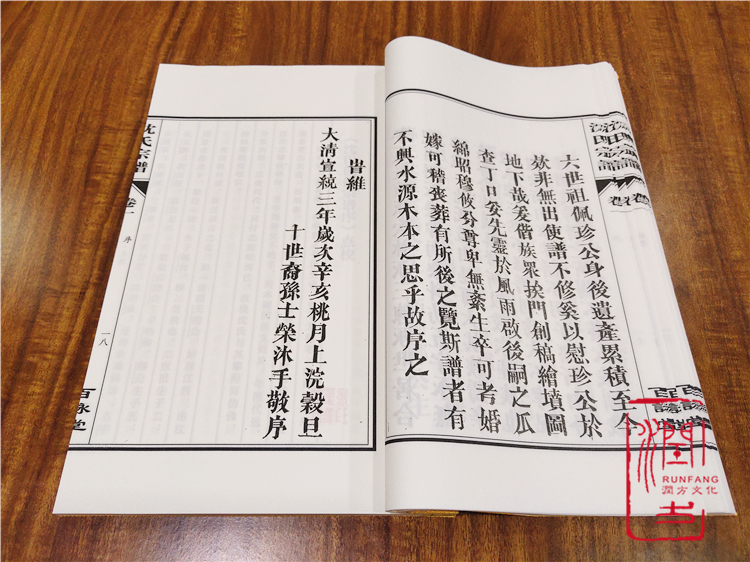 六世祖佩珍公身後遺產累積至今
欸非無出使譜不修奚以慰珍公於
地下哉爰偕族眾挨門創稿繪墳圖
查丁口妥先靈於風雨啟後嗣之瓜
綿昭穆攸分尊卑無紊生卒可考婚
嫁可稽喪葬有所後之覽斯譜者有
不興水源木本之思乎故序之
旹維
大清宣統三年歲次辛亥桃月上浣穀旦
十世裔孫士榮沐手敬序
沈氏宗譜
卷一
序
一八
百詠堂
RUNFANG
潤方文化